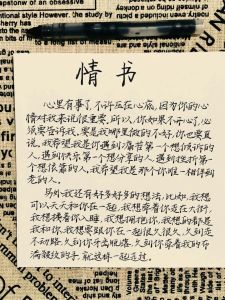 情书
心里有事了,不许压在心底,因为你的心
情对我来说很重要,所以,你如果不开心了,必
须要告诉我,要是我哪里做的不好,你也要直
说,我希望我是你遇到痛苦第一个想倾诉的
人,遇到快乐第一个想分享的人,遇到挫折第一
个想依靠的人,我希望我是那个你唯一相伴到
老的人。
另外我还有好多好多的想法,比如,我想
可以天天和你在一起,我想牵着你走在大街,
我想搂着你入睡,我想拥抱你,我想的都是
我和你,我想要跟你在一起很久很久,久到走
不动路,久到你牙齿掉光,久到你牵着我的布
满皱纹的手,就这样一起走过。